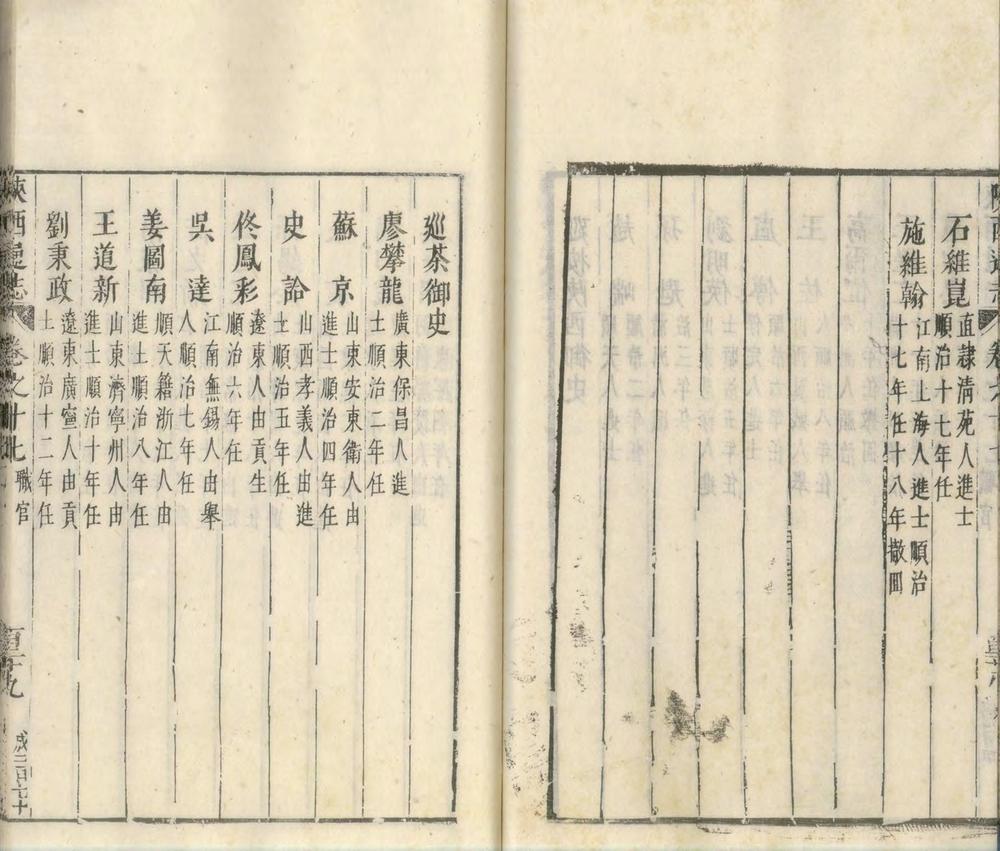 石維崑 直隸清苑人進士
順治十七年任
施維翰 江南上海人進士順治
十七年任十八年撤囬
廵茶御史
廖攀龍 廣東保昌人進
士順治二年任
蘇京 山東安東衛人由
進士順治四年任
史諭 山西孝義人由進
士順治五年任
佟鳳彩 遼東人由貢生
順治六年任
吳達 江南無錫人由舉
人順治七年任
姜圖南 順天籍浙江人由
進士順治八年任
王道新 山東濟寧州人由
進士順治十年任
劉秉政 遼東廣寧人由貢
士順治十二年任
陝西通志 卷之十七 職官